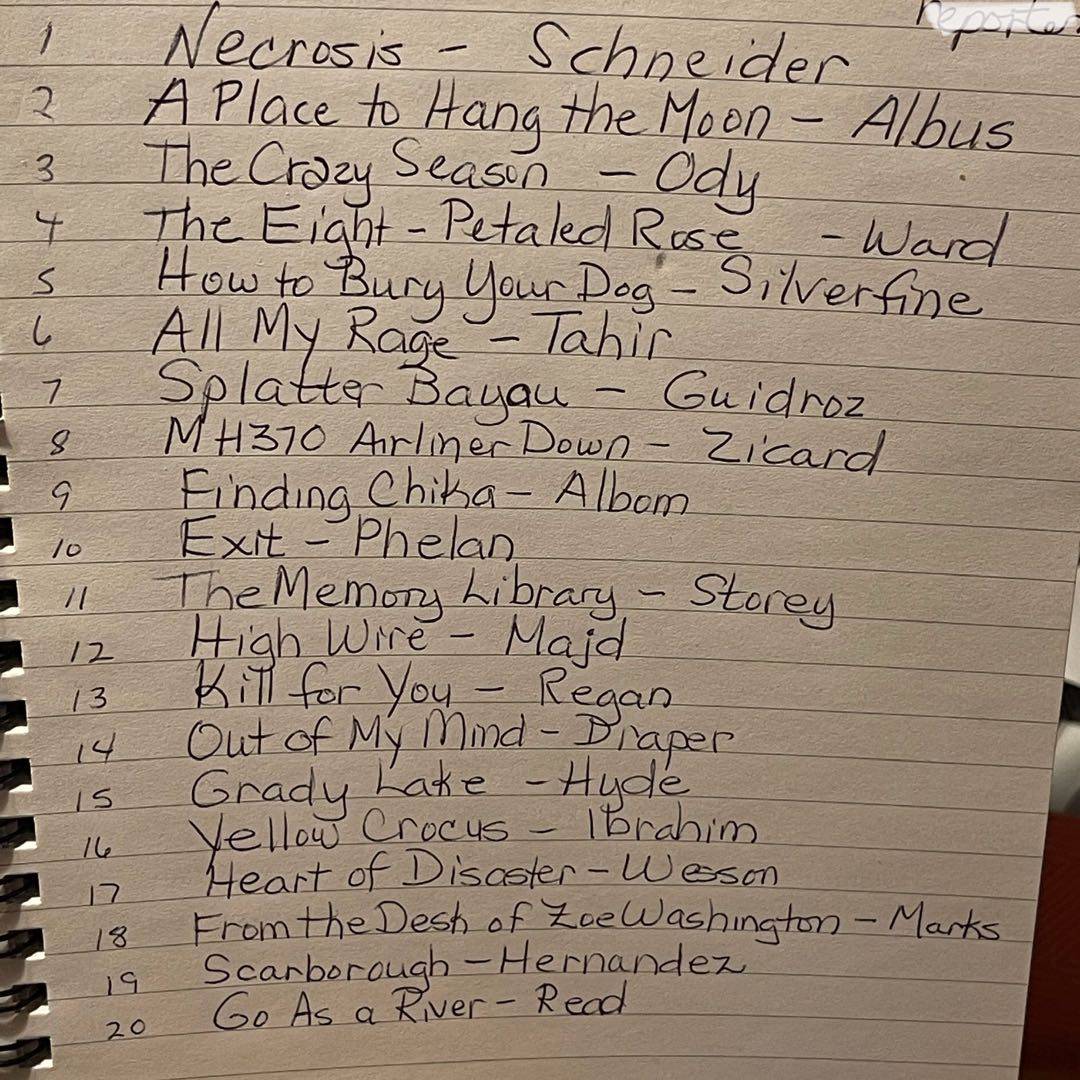 reporter
1 Necrosis - Schneider
2 A Place to Hang the Moon - Albus
3 The Crazy Season - Ody
4 The Eight-Petaled Rose - Ward
5 How to Bury Your Dog - Silverfine
6 All My Rage - Tahir
7 Splatter Bayou - Guidroz
8 MH370 Airliner Down - Zicard
9 Finding Chika - Albom
10 Exit - Phelan
11 The Memory Library - Storey
12 High Wire - Majd
13 Kill for You - Regan
14 Out of My Mind - Draper
15 Grady Lake - Hyde
16 Yellow Crocus - Ibrahim
17 Heart of Disaster - Wesson
18 From the Desk of Zoe Washington - Marks
19 Scarborough - Hernandez
20 Go As a River - Read